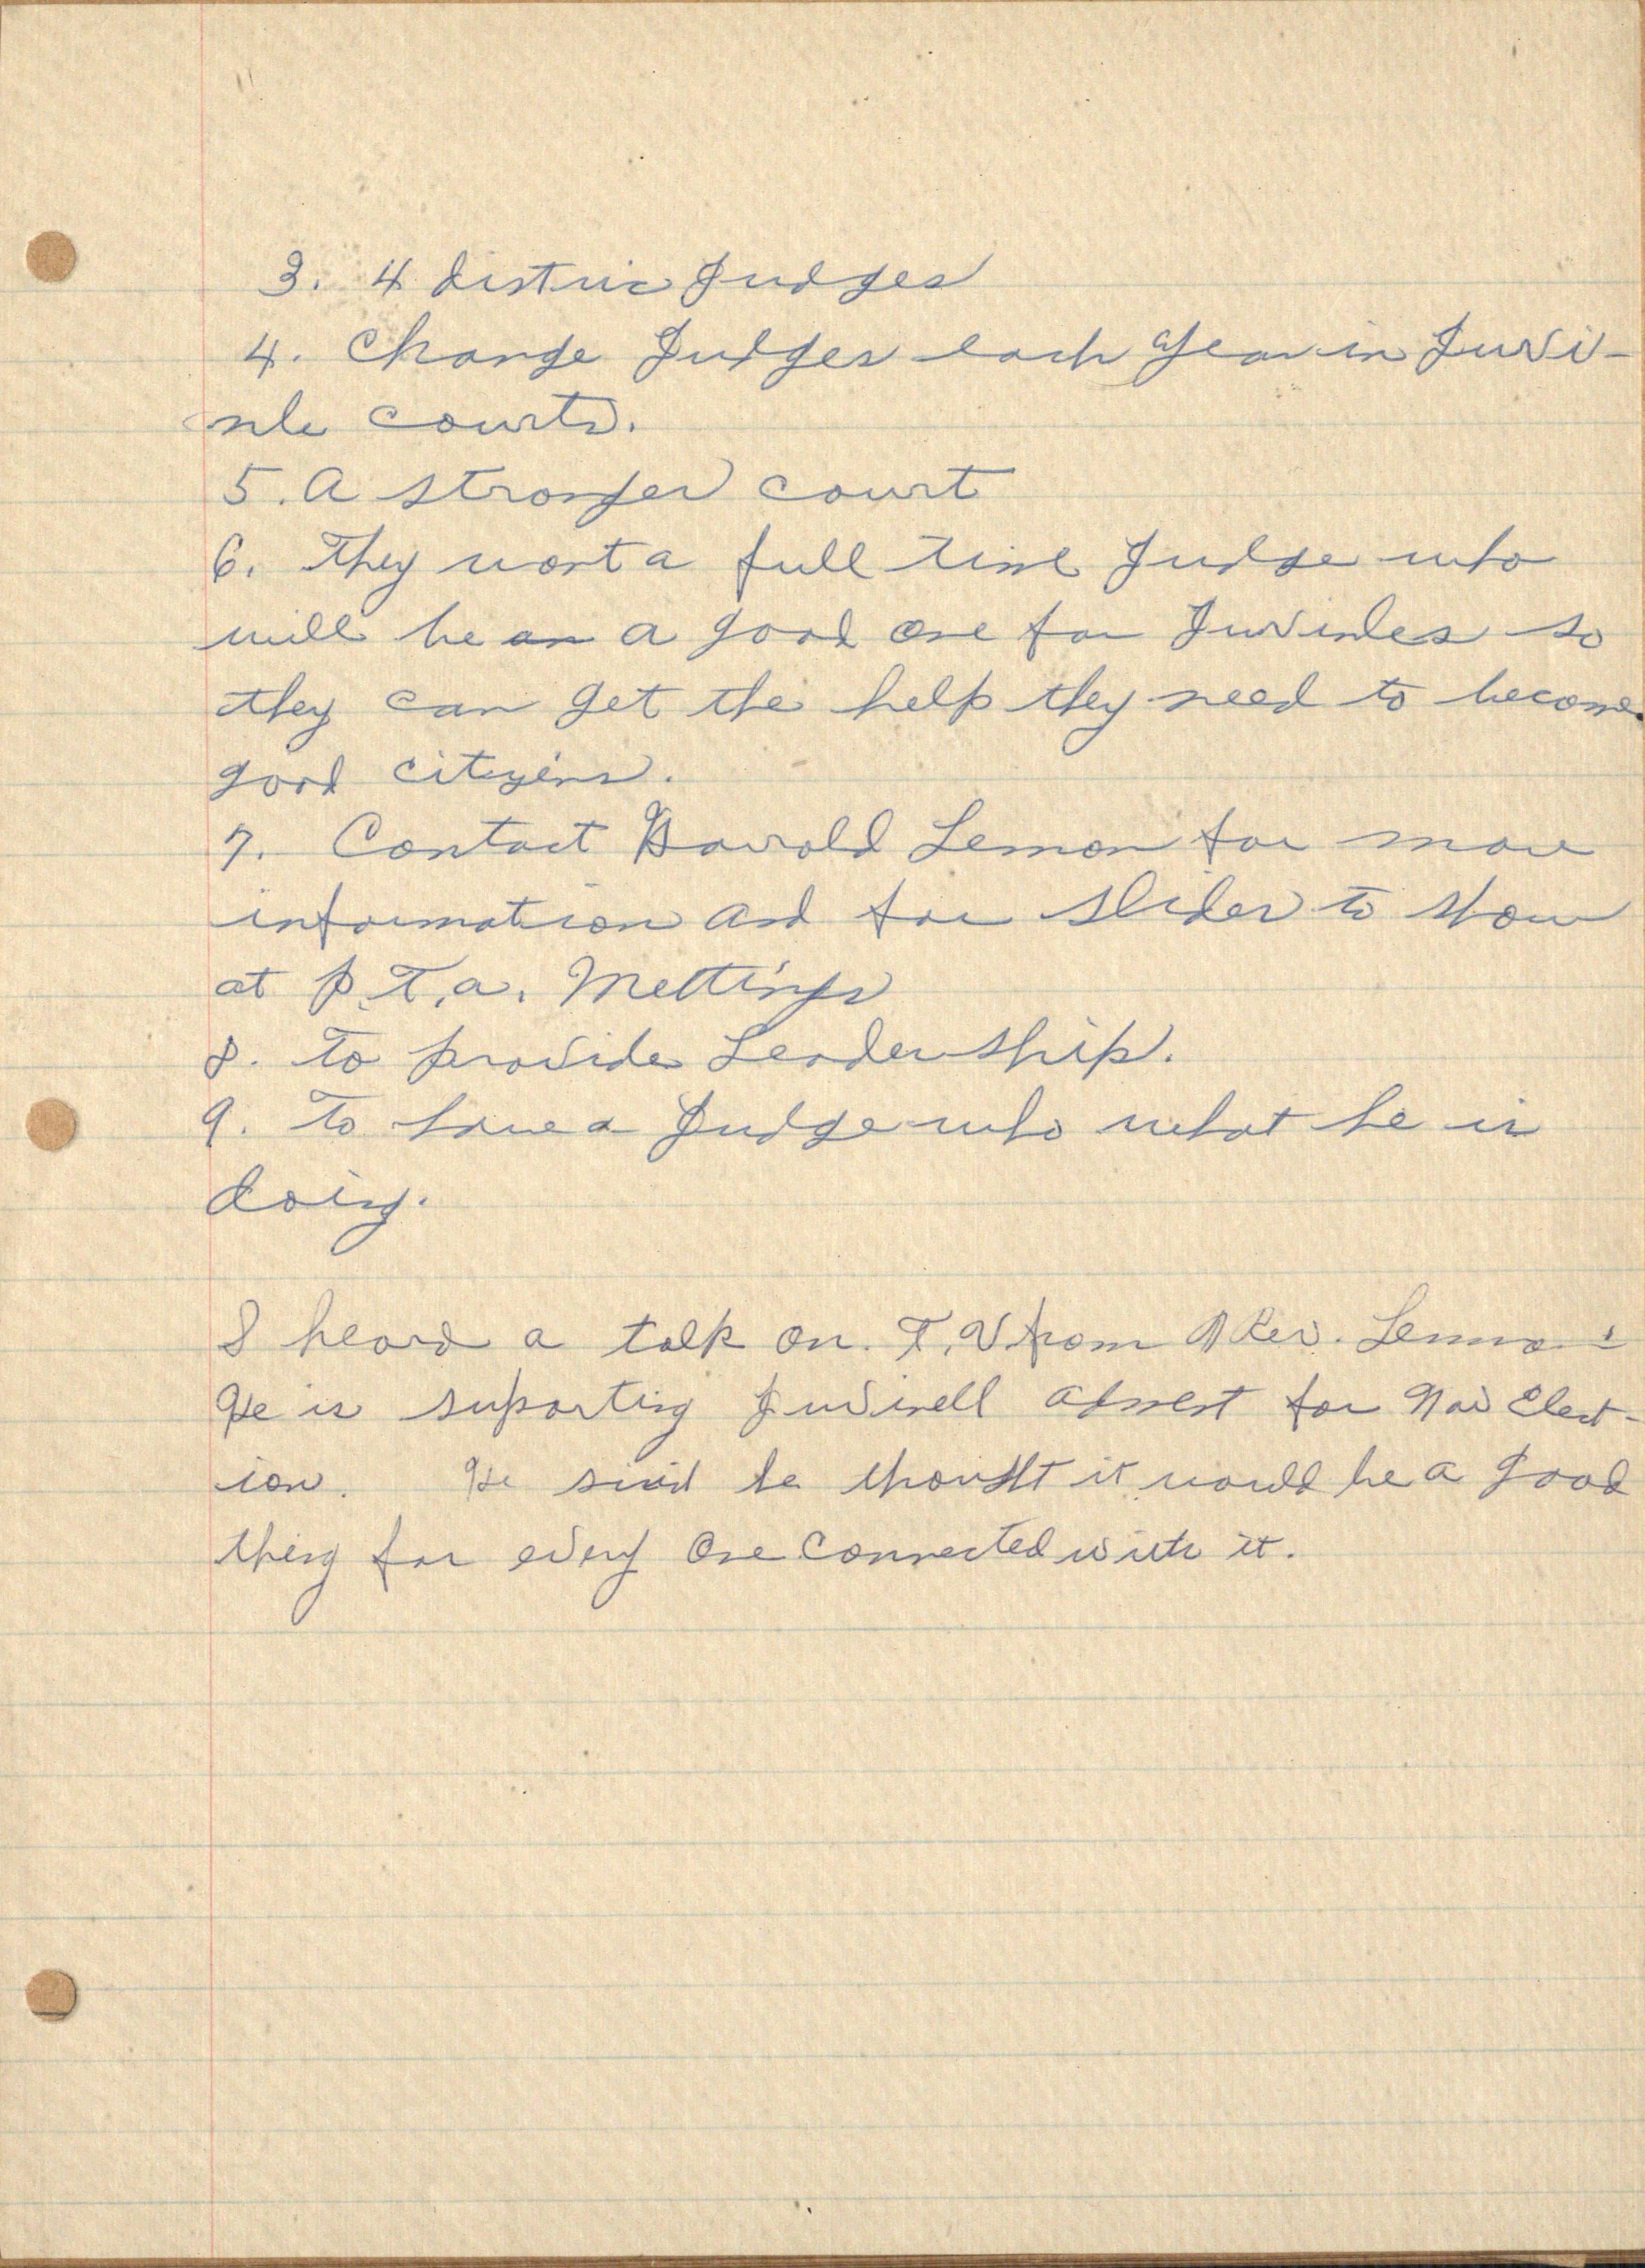 3. 4 distric Judges
4. Change Judges each year in Juvi-
nle courts.
5. A stronger court
6. They want a full time Judge who
will be an a good one for Juvinles so
they can get the help they need to become
good citizens.
7. Contact Harold Lemon for more
information and for slides to show
at P.T.A. Mettings
8. To provide Leadership.
9. To have a Judge who what he is
doing.
I heard a talk on T.V from A Rev. Lemmon
He is supporting Juvinell for Nov Elect-
ion. He said he thought it would be a good
thing for every one connected with it.